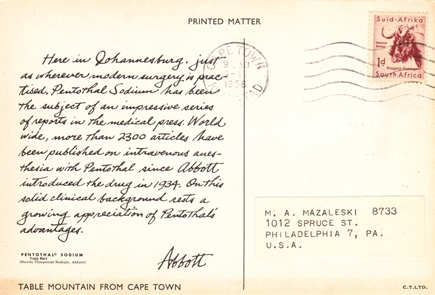 PRINTED MATTER
Here in Johannesburg, just
as wherever modern surgery is prac-
tised, Pentothal Sodium has been
the subject of an impressive series
of reports in the medical press. World
wide, more than 2300 articles have
been published on intravenous anes-
thesia with Pentothal since Abbott
introduced the drug in 1934. On this
solid clinical background rests a
growing appreciation of Pentothal's
advantages.
Abbott
PENTOTHAL® SODIUM
Trade Mark
(Sterile Thiopental Sodium, Abbott)
TABLE MOUNTAIN FROM CAPE TOWN
CAPE TOWN
1956
Suid-Afrika
1d
South Africa
M. A. MAZALESKI 8733
1012 SPRUCE ST.
PHILADELPHIA 7, PA.
U.S.A.
C.T.LTD.